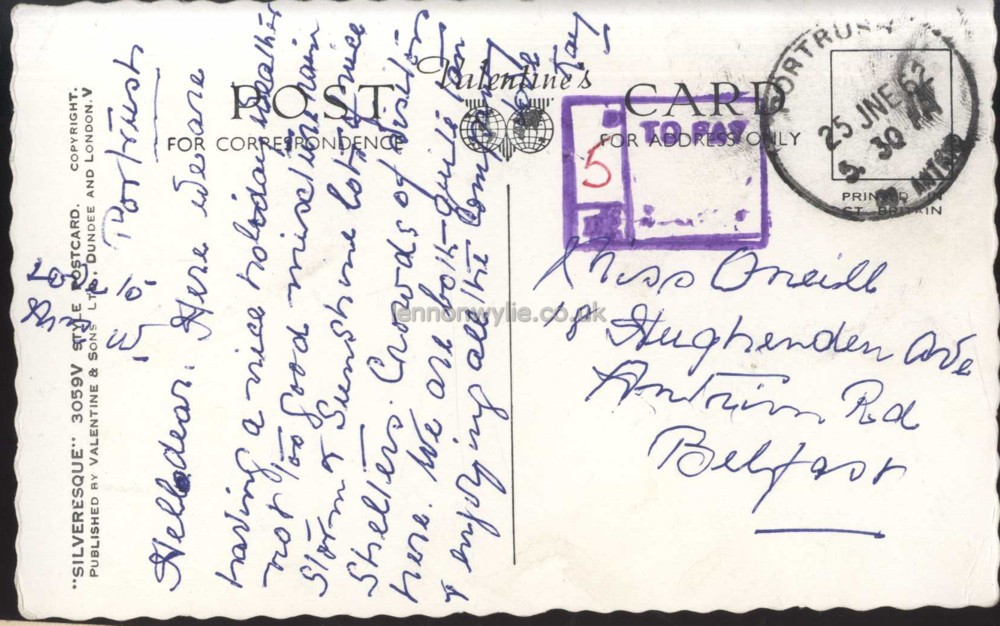 "SILVERESQUE" 3059V STYLE POSTCARD. COPYRIGHT.
PUBLISHED BY VALENTINE & SONS LTD, DUNDEE AND LONDON.V
Valentine's
POST CARD
FOR CORRESPONDENCE
FOR ADDRESS ONLY
Portrush
Hello dear. Here we are
having a nice holiday weather
not too good mixture rain
Storm & Sunshine lots of nice
Shelters. Crowds of visitors
here. We are both quite
& enjoying all the
TO PAY
5
PORTRUSH
25 JNE 62
30 PM
CO. ANTRIM
PRINTED IN
GT. BRITAIN
Miss Oneill
8 Hughenden Ave
Antrim Rd
Belfast
lennonwylie.co.uk